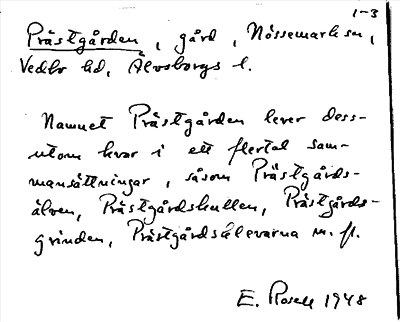 1-3
Prästgården, gård, Nössemarks sn,
Vedbo hd, Älvsborgs l.
Namnet Prästgården lever dess-
utom kvar i ett flertal sam-
mansättningar, såsom Prästgårds-
älven, Prästgårdskullen, Prästgårds-
grinden, Prästgårdsklevarna m. fl.
E. Rosell 1948